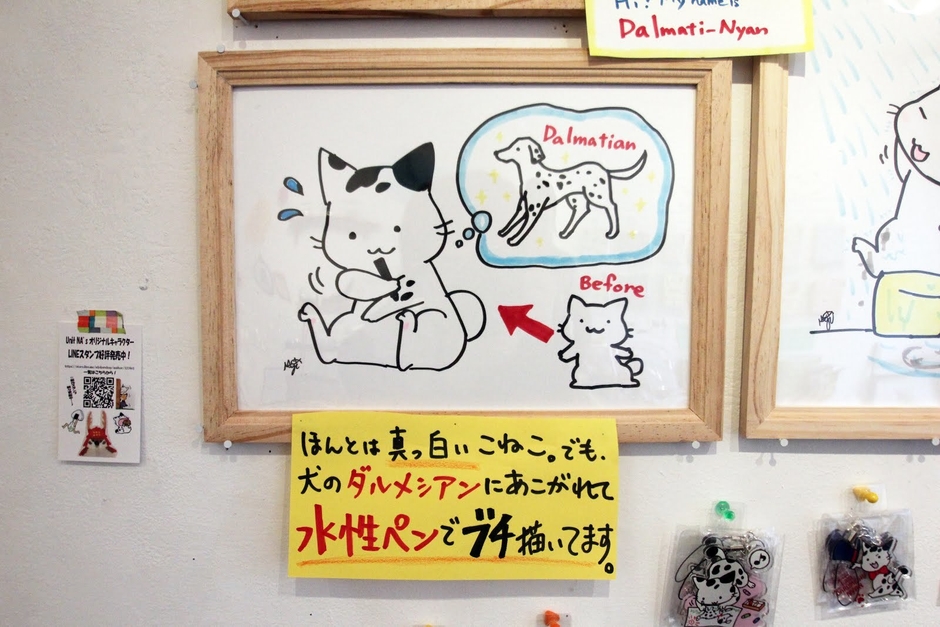 Hi! My name is
Dalmati-Nyan
Dalmatian
Before
Unit NA's オリジナルキャラクター
LINEスタンプ好評発売中!
ほんとは真っ白いこねこ。でも、
犬のダルメシアンにあこがれて
水性ペンでブチ描いてます。